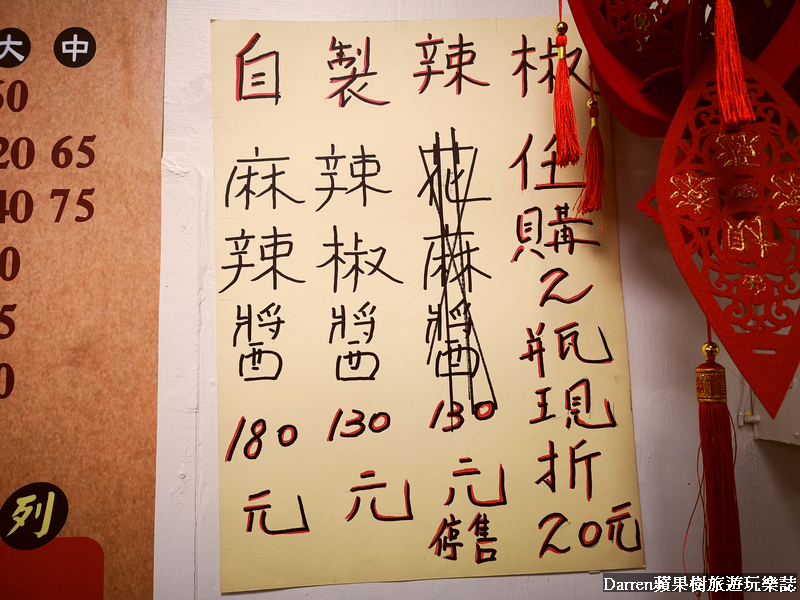 大 中
50
20 65
40 75
0
5
0
列
自製辣椒
任購2瓶現折20元
花麻醬130元
停售
辣椒醬130元
麻辣醬180元
Darren蘋果樹旅遊玩樂誌